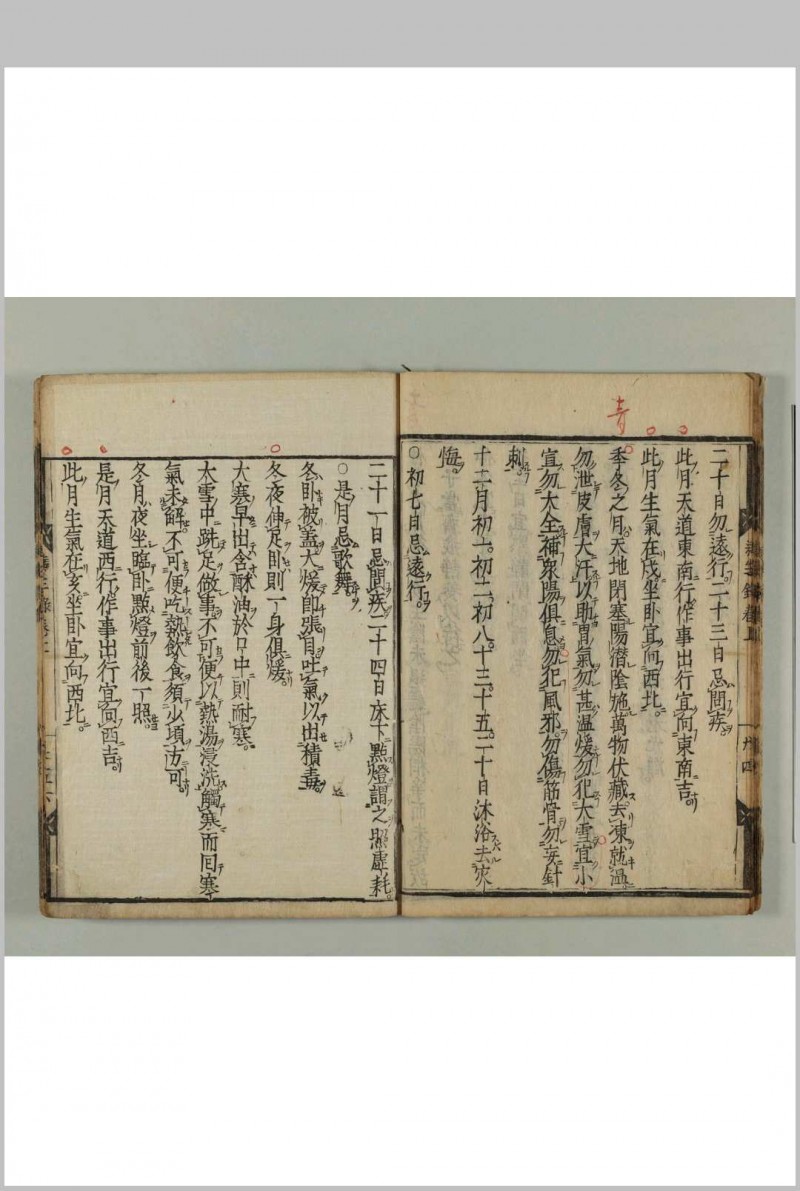 青
二十日勿遠行二十三日忌問疾
此月天道東南行作事出行宜向東南吉
此月生氣在戌坐卧宜向西北
季冬之月天地閉塞陽潜陰施萬物伏藏去凍就温
勿泄皮膚大汗以助胃氣勿甚温煖勿犯大雪宜小
宣勿大全補衆陽俱息勿犯風邪勿傷筋骨勿妄針
刺
十二月初一初二初八十三十五二十日沐浴去灾
悔
〇初七日忌遠行
二十一日忌問疾二十四日床下點燈謂之照虚耗
〇是月忌歌舞
冬卧被蓋大煖卽張目吐氣以出積毒
冬夜伸足卧則一身俱煖
大寒早出含酥油於口中則耐寒
大雪中跣足做事不可便以熱湯浸洗觸寒而囘寒
氣未解不可便吃熱飲食須少項方可
冬月夜坐臨卧點燈前後一照
是月天道西行作事出行宜向西吉
此月生氣在亥坐卧宜向西北